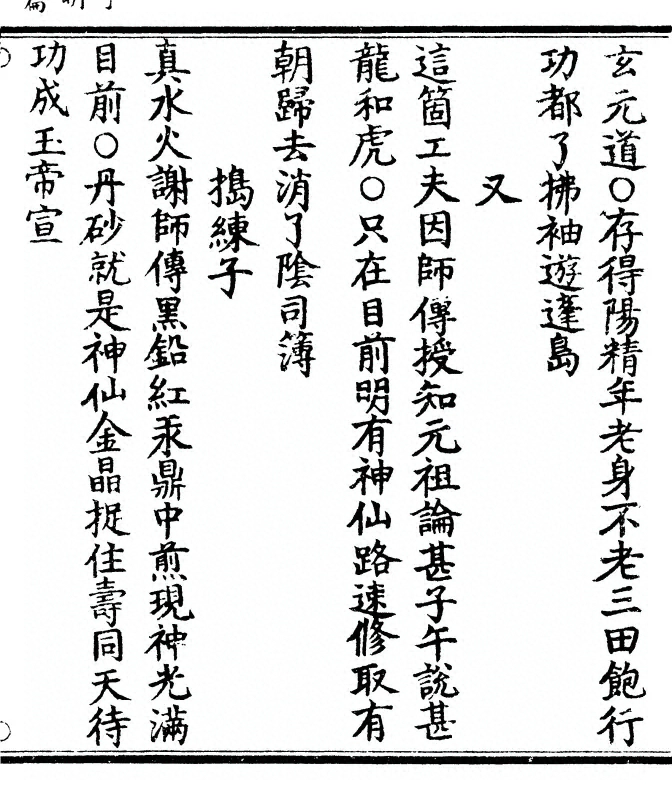 玄元道○存得陽精年老身不老三田飽行
功都了拂袖遊蓬島
又
這箇工夫因師傳授知元祖論甚子午說甚
龍和虎○只在目前明有神仙路速修取有
朝歸去消了陰司簿
搗練子
真水火謝師傳黑鉛紅汞鼎中煎現神光滿
目前○丹砂就是神仙金晶捉住壽同天待
功成玉帝宣